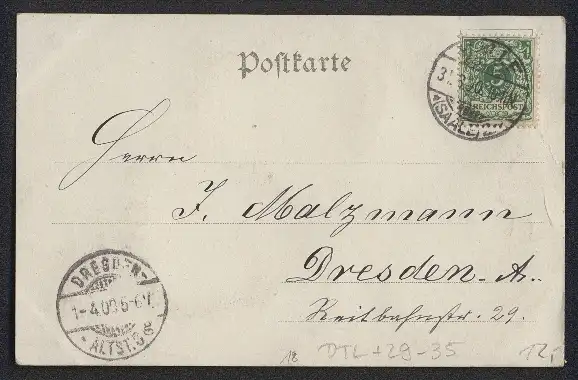 Postkarte
HALLE
5
REICHSPOST
(SAALE)
Herrn
J. Malzmann
Dresden-A..
Reitbahnstr. 29.
DRESDEN-
1-4.00.6-6 1/2 V.
ALTST.9
18 DTL +29-35